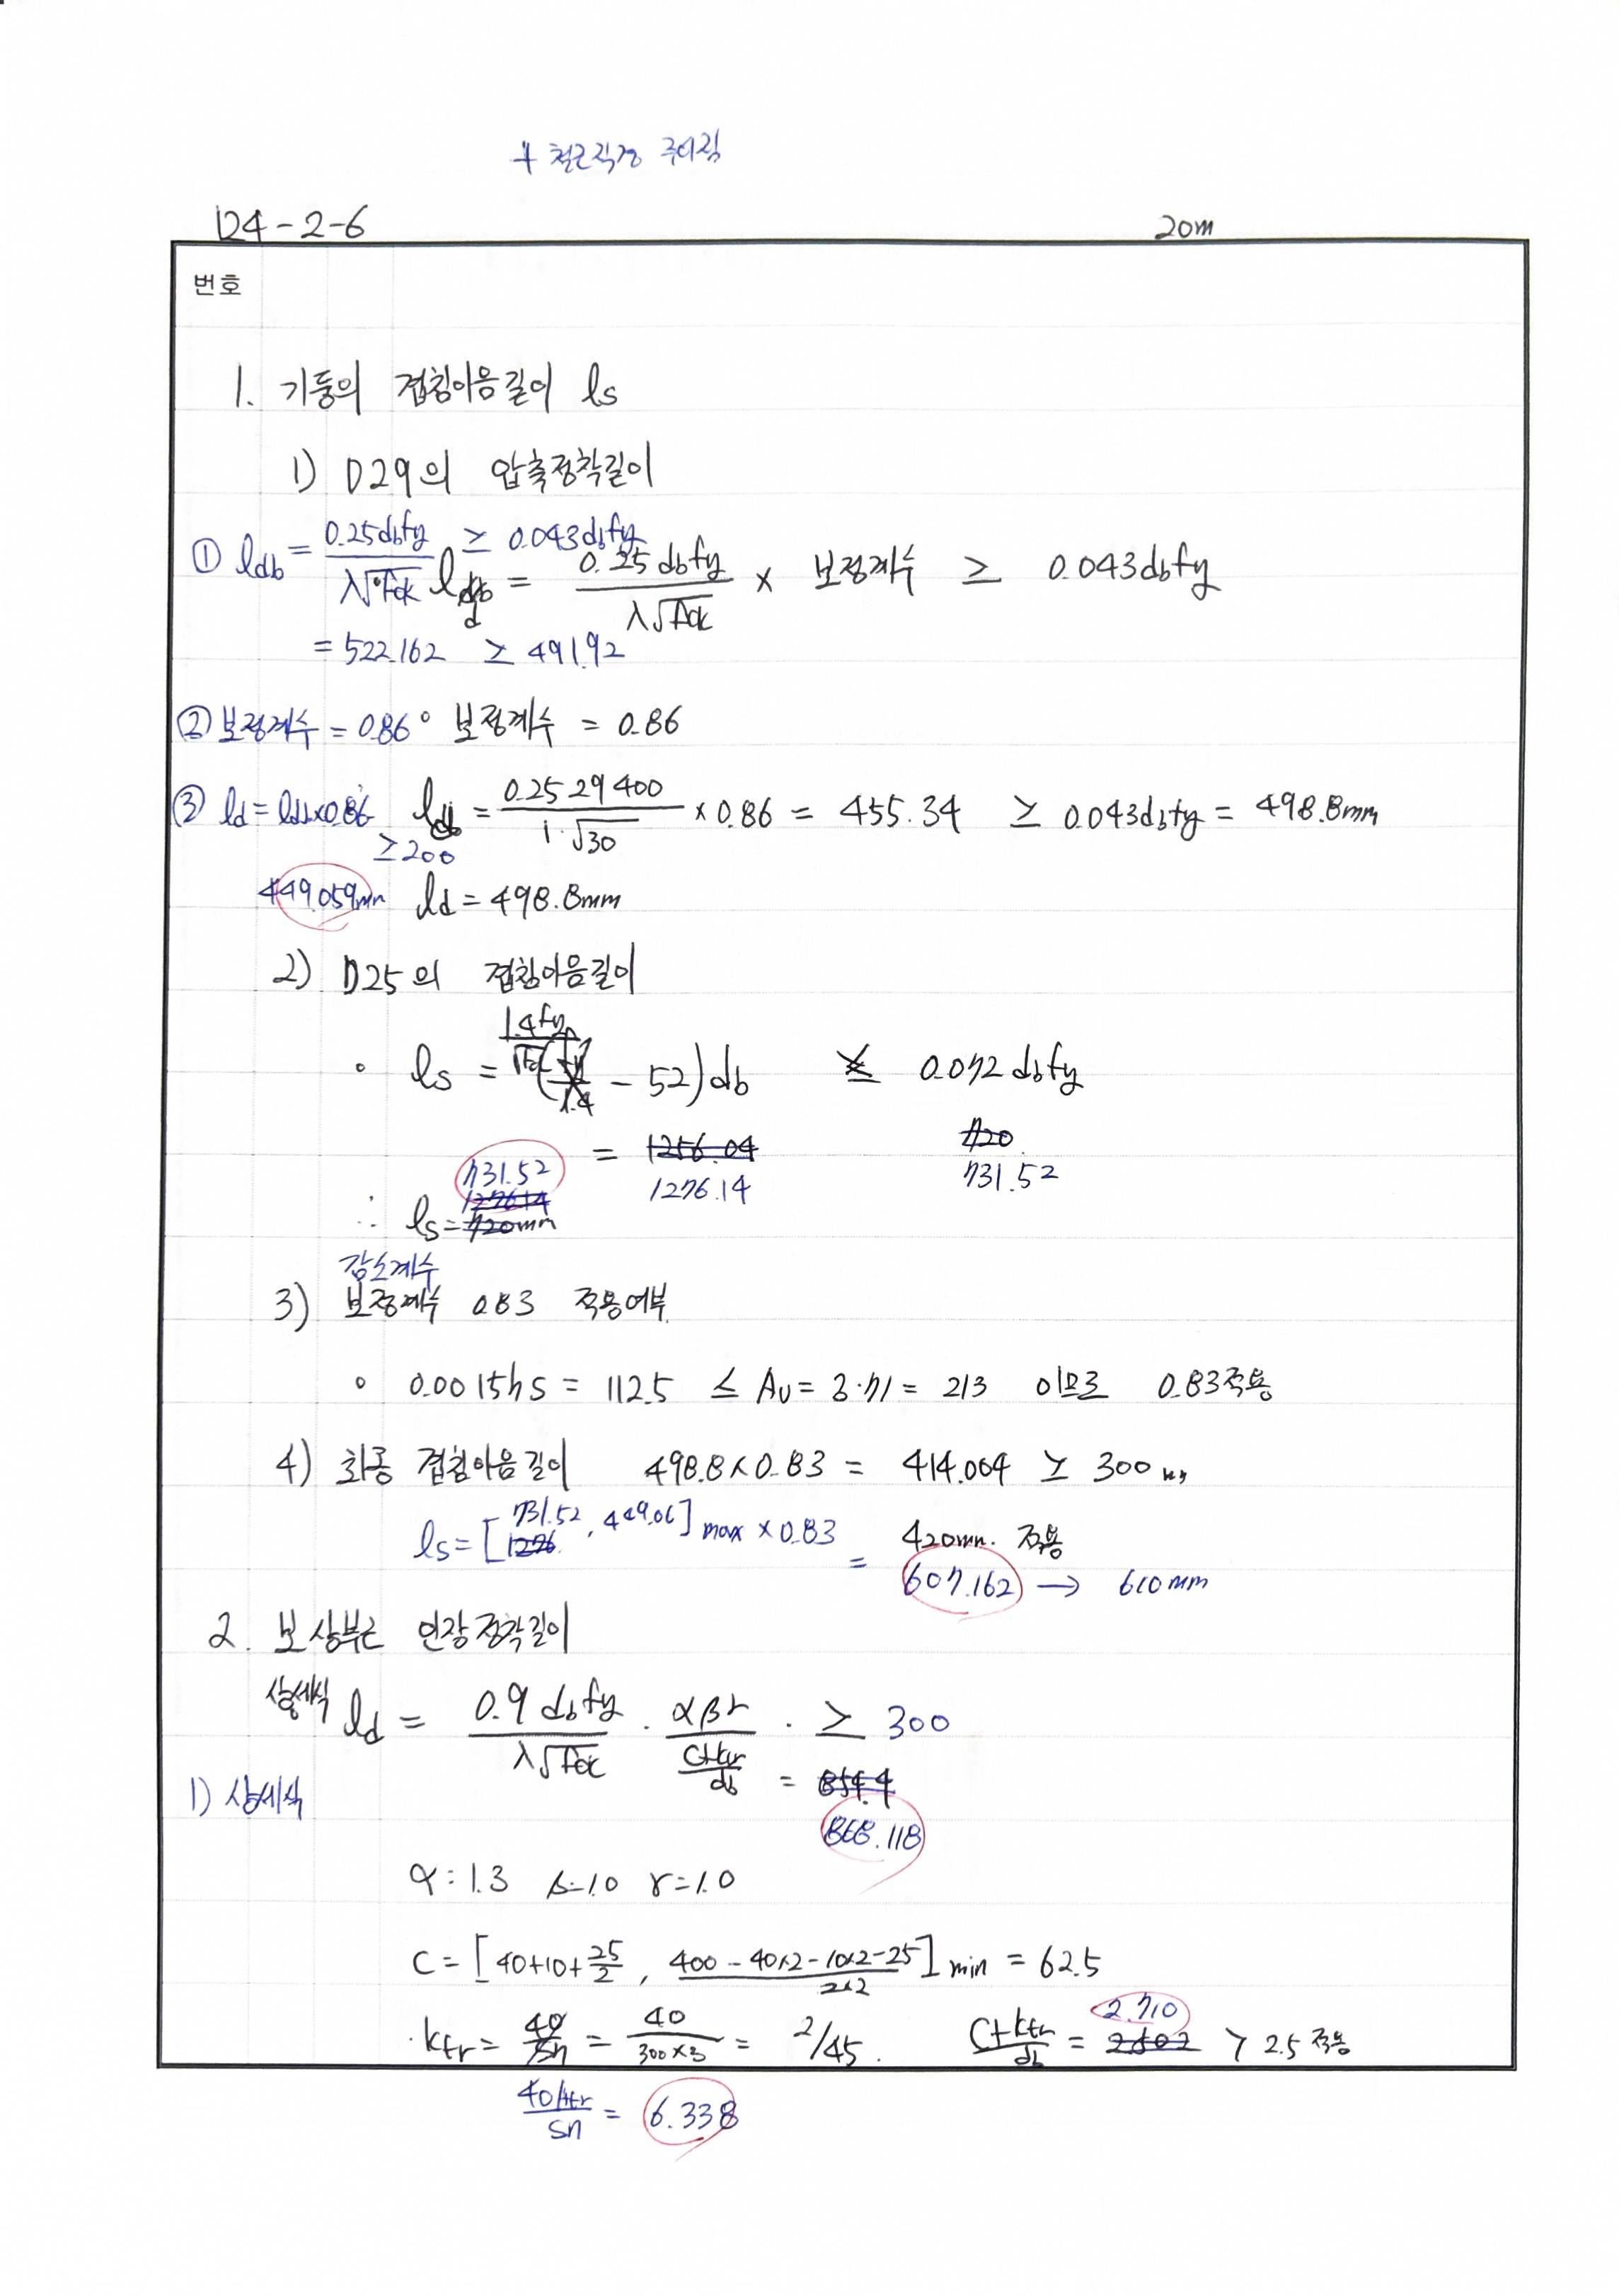 + 철근직경 주어짐
124-2-6 20m
번호
1. 기둥의 겹침이음길이 ls
1) D29의 압축정착길이
① ldb = 0.25dbfy / λ√fck ≥ 0.043dbfy
ld = 0.25dbfy / λ√fck × 보정계수 ≥ 0.043dbfy
= 522.162 ≥ 491.92
② 보정계수 = 0.86 ∘ 보정계수 = 0.86
③ ld = ldb×0.86 ld = 0.25 29 400 / 1·√30 × 0.86 = 455.34 ≥ 0.043dbfy = 498.8mm
≥200
449.059mm ld = 498.8mm
2) D25의 겹침이음길이
∘ ls = (1.4fy / √fck - 52)db ≤ 0.072dbfy
= 1256.04 720
731.52 1276.14 731.52
1276.14
∴ ls = 720mm
감소계수
3) 보정계수 0.83 적용여부
∘ 0.0015hs = 112.5 ≤ Av = 3·71 = 213 이므로 0.83적용
4) 최종 겹침이음길이 498.8×0.83 = 414.004 ≥ 300
ls = [731.52 1276, 449.06] max × 0.83 = 420mm. 적용
607.162 → 610mm
2. 보 상부근 인장정착길이
상세식 ld = 0.9dbfy / λ√fck · αβγ / (c+ktr / db) · ≥ 300
1) 상세식 = 854.4
868.118
α: 1.3 β=1.0 γ=1.0
C = [40+10+25/2, 400-40×2-10×2-25 / 2×2] min = 62.5
· ktr = 40/sn = 40 / 300×3 = 2/45. C+ktr / db = 2.502 2.710 > 2.5 적용
40Atr / sn = 6.338